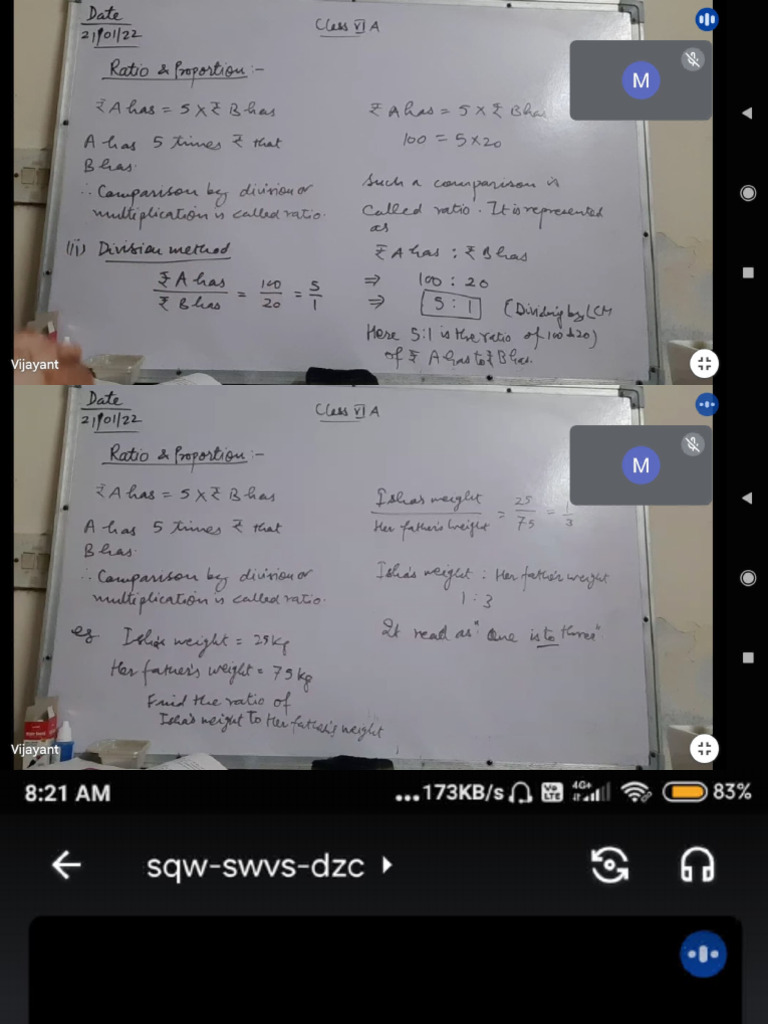 Date
21/01/22
Class VI A
Ratio & Proportion :-
₹ A has = 5 x ₹ B has
A has 5 times ₹ that
B has.
∴ Comparison by division or
multiplication is called ratio.
(ii) Division method
₹ A has / ₹ B has = 100/20 = 5/1
₹ A has = 5 x ₹ B has
100 = 5 x 20
Such a comparison is
called ratio. It is represented
as
₹ A has : ₹ B has
⇒ 100 : 20
⇒ 5 : 1 (Dividing by LCM
of 100 & 20)
Here 5:1 is the ratio
of ₹ A has to ₹ B has.
M
Vijayant
Date
21/01/22
Class VI A
Ratio & Proportion :-
₹ A has = 5 X ₹ B has
A has 5 times ₹ that
B has.
∴ Comparison by division or
multiplication is called ratio.
eg Isha's weight = 25 kg
Her father's weight = 75 kg
Find the ratio of
Isha's weight to Her father's weight
Isha's weight / Her father's weight = 25/75 = 1/3
Isha's weight : Her father's weight
1 : 3
It read as "One is to three"
M
Vijayant
8:21 AM
...173KB/s
Vo LTE
4G+
83%
sqw-swvs-dzc